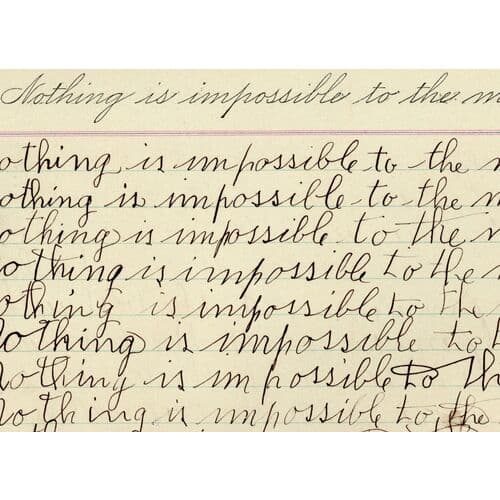 Nothing is impossible to the m
othing is impossible to the
othing is impossible to the
othing is impossible to the
othing is impossible to the
othing is impossible to the
Nothing is impossible to
Nothing is impossible to th
Nothing is impossible to the